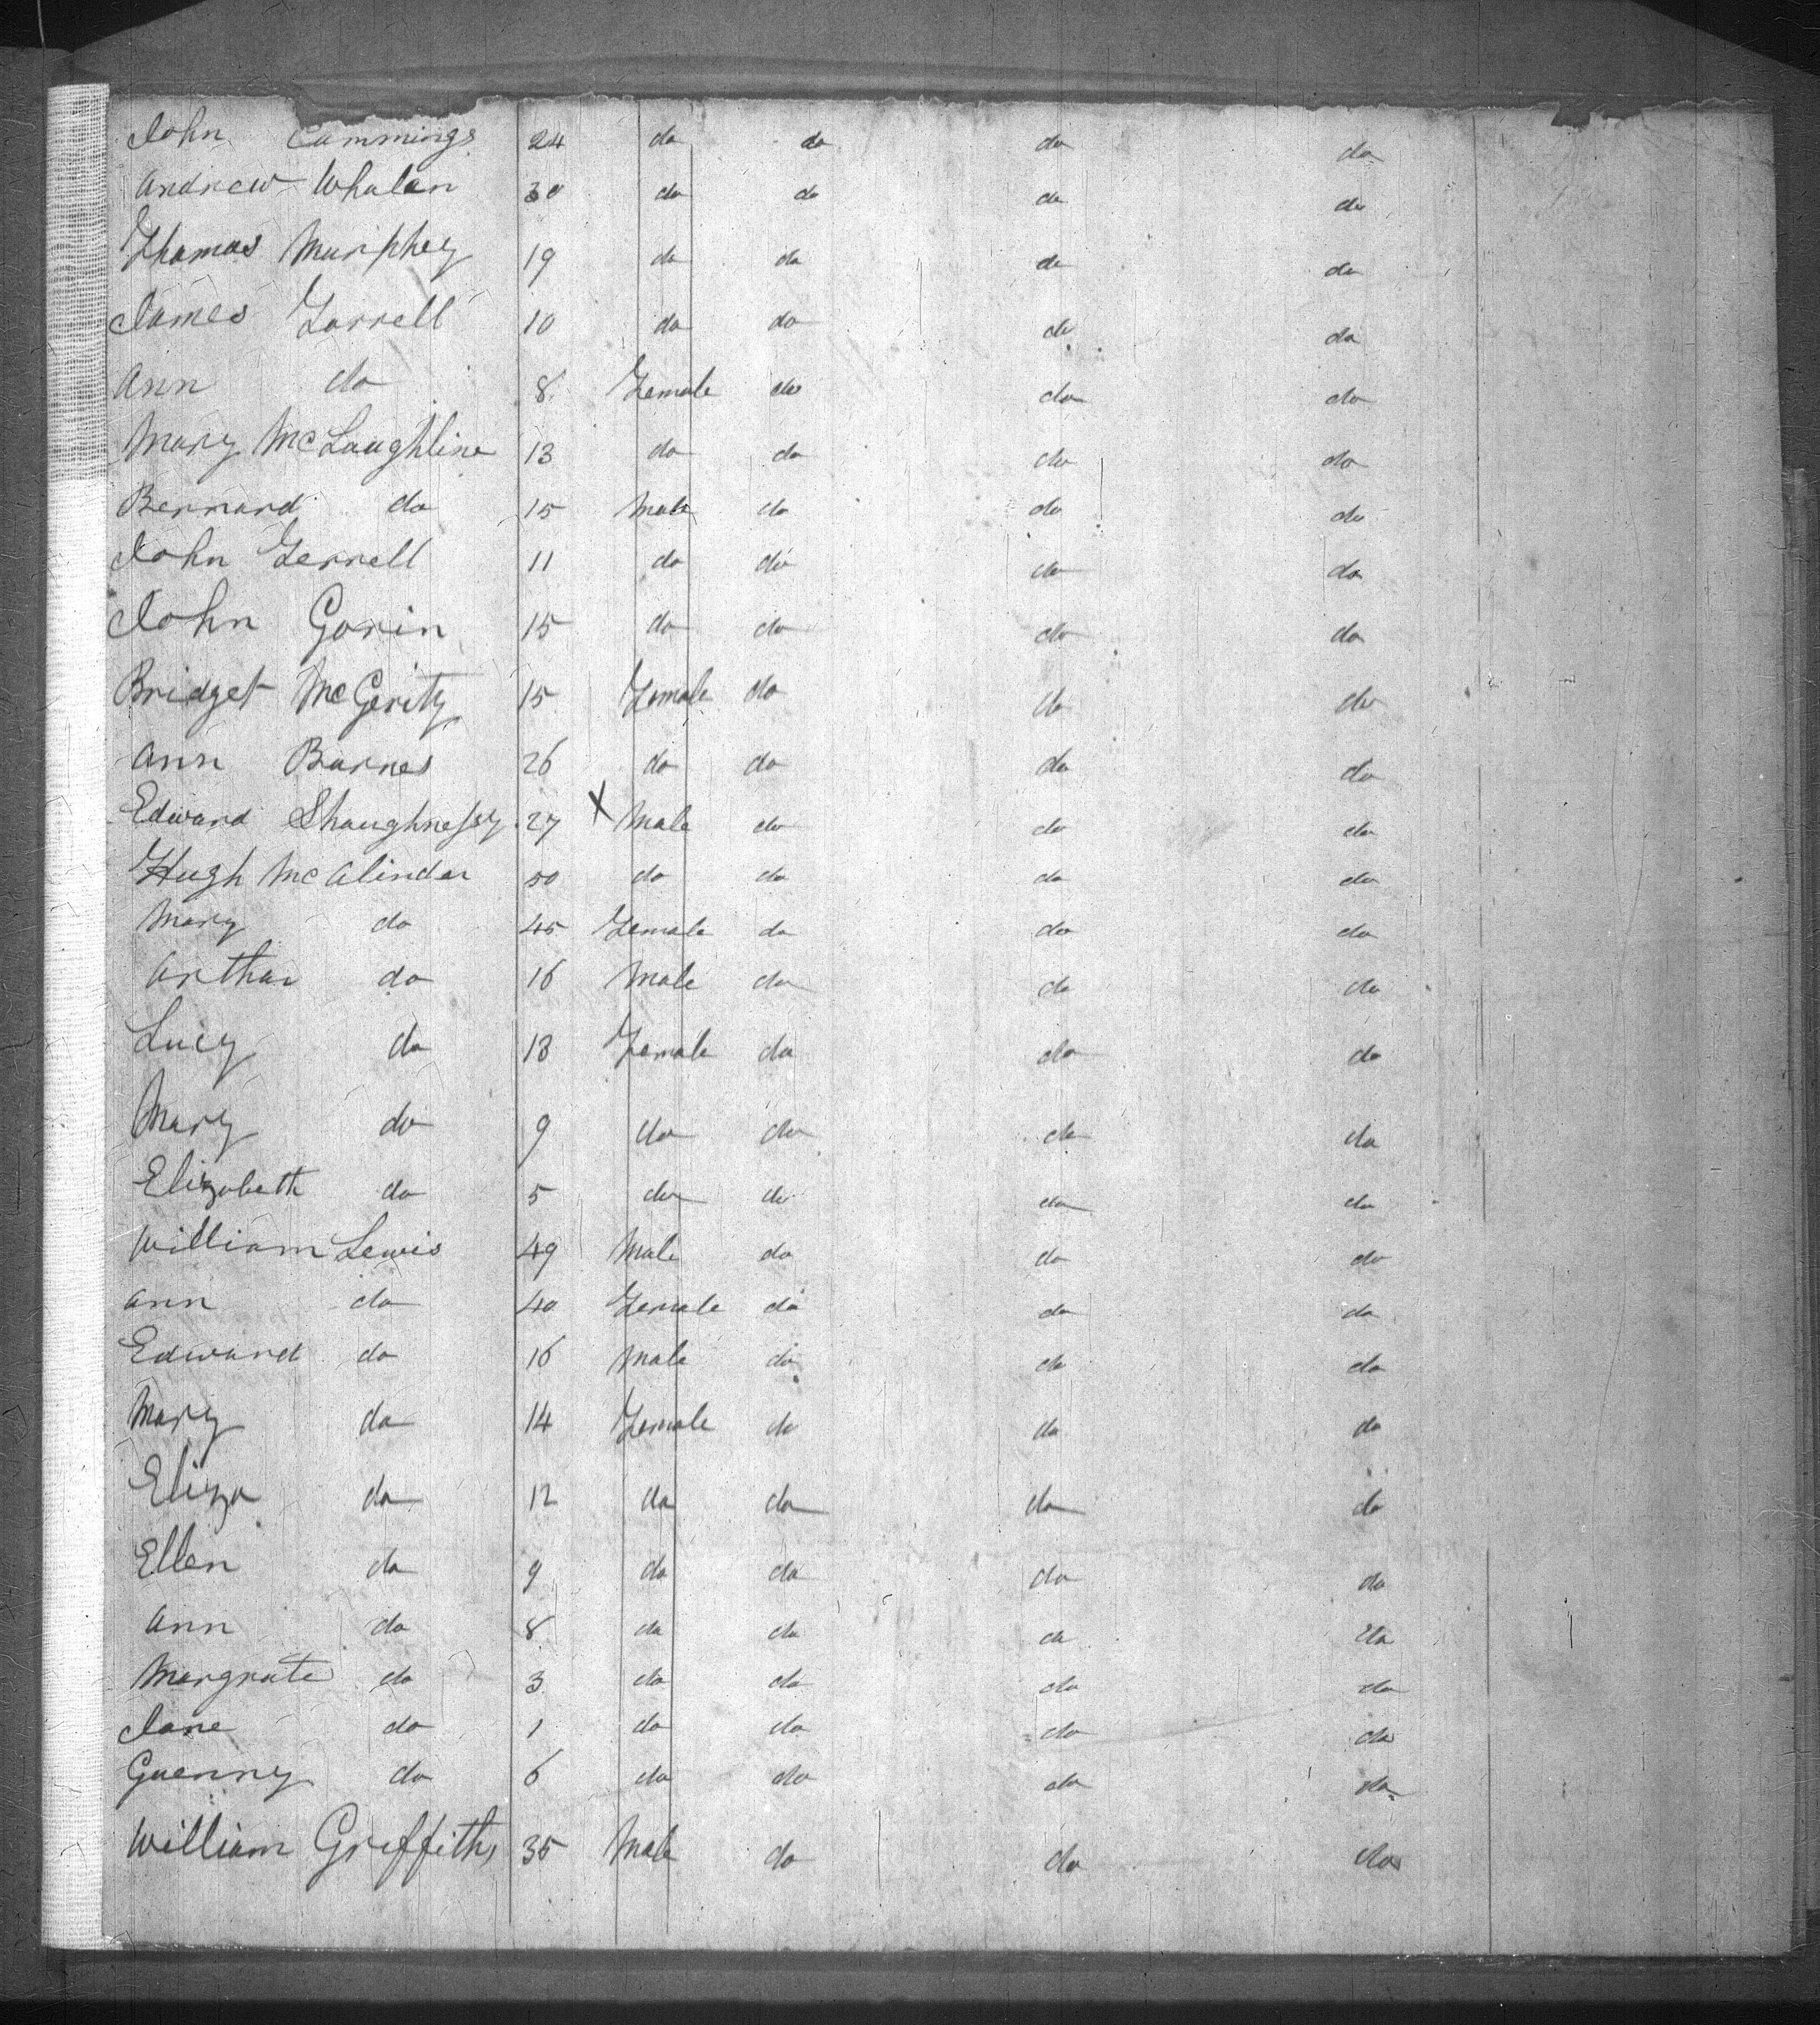 John Cummings 24 do do do do
Andrew Whalen 30 do do do do
Thomas Murphey 19 do do do do
James Farrell 10 do do do do
Ann do 8 Female do do do
Mary McLaughline 13 do do do do
Bernard do 15 Male do do do
John Ferrell 11 do do do do
John Gorin 15 do do do do
Bridget McGerity 15 Female do do do
Ann Barnes 26 do do do do
Edward Shaughnessy 27 X Male do do do
Hugh McAlinder 50 do do do do
Mary do 45 Female do do do
Arthur do 16 Male do do do
Lucy do 13 Female do do do
Mary do 9 do do do do
Elizabeth do 5 do do do do
William Lewis 49 Male do do do
Ann do 40 Female do do do
Edward do 16 Male do do do
Mary do 14 Female do do do
Eliza do 12 do do do do
Ellen do 9 do do do do
Ann do 8 do do do do
Margrate do 3 do do do do
Jane do 1 do do do do
Guenny do 6 do do do do
William Griffiths 35 Male do do do